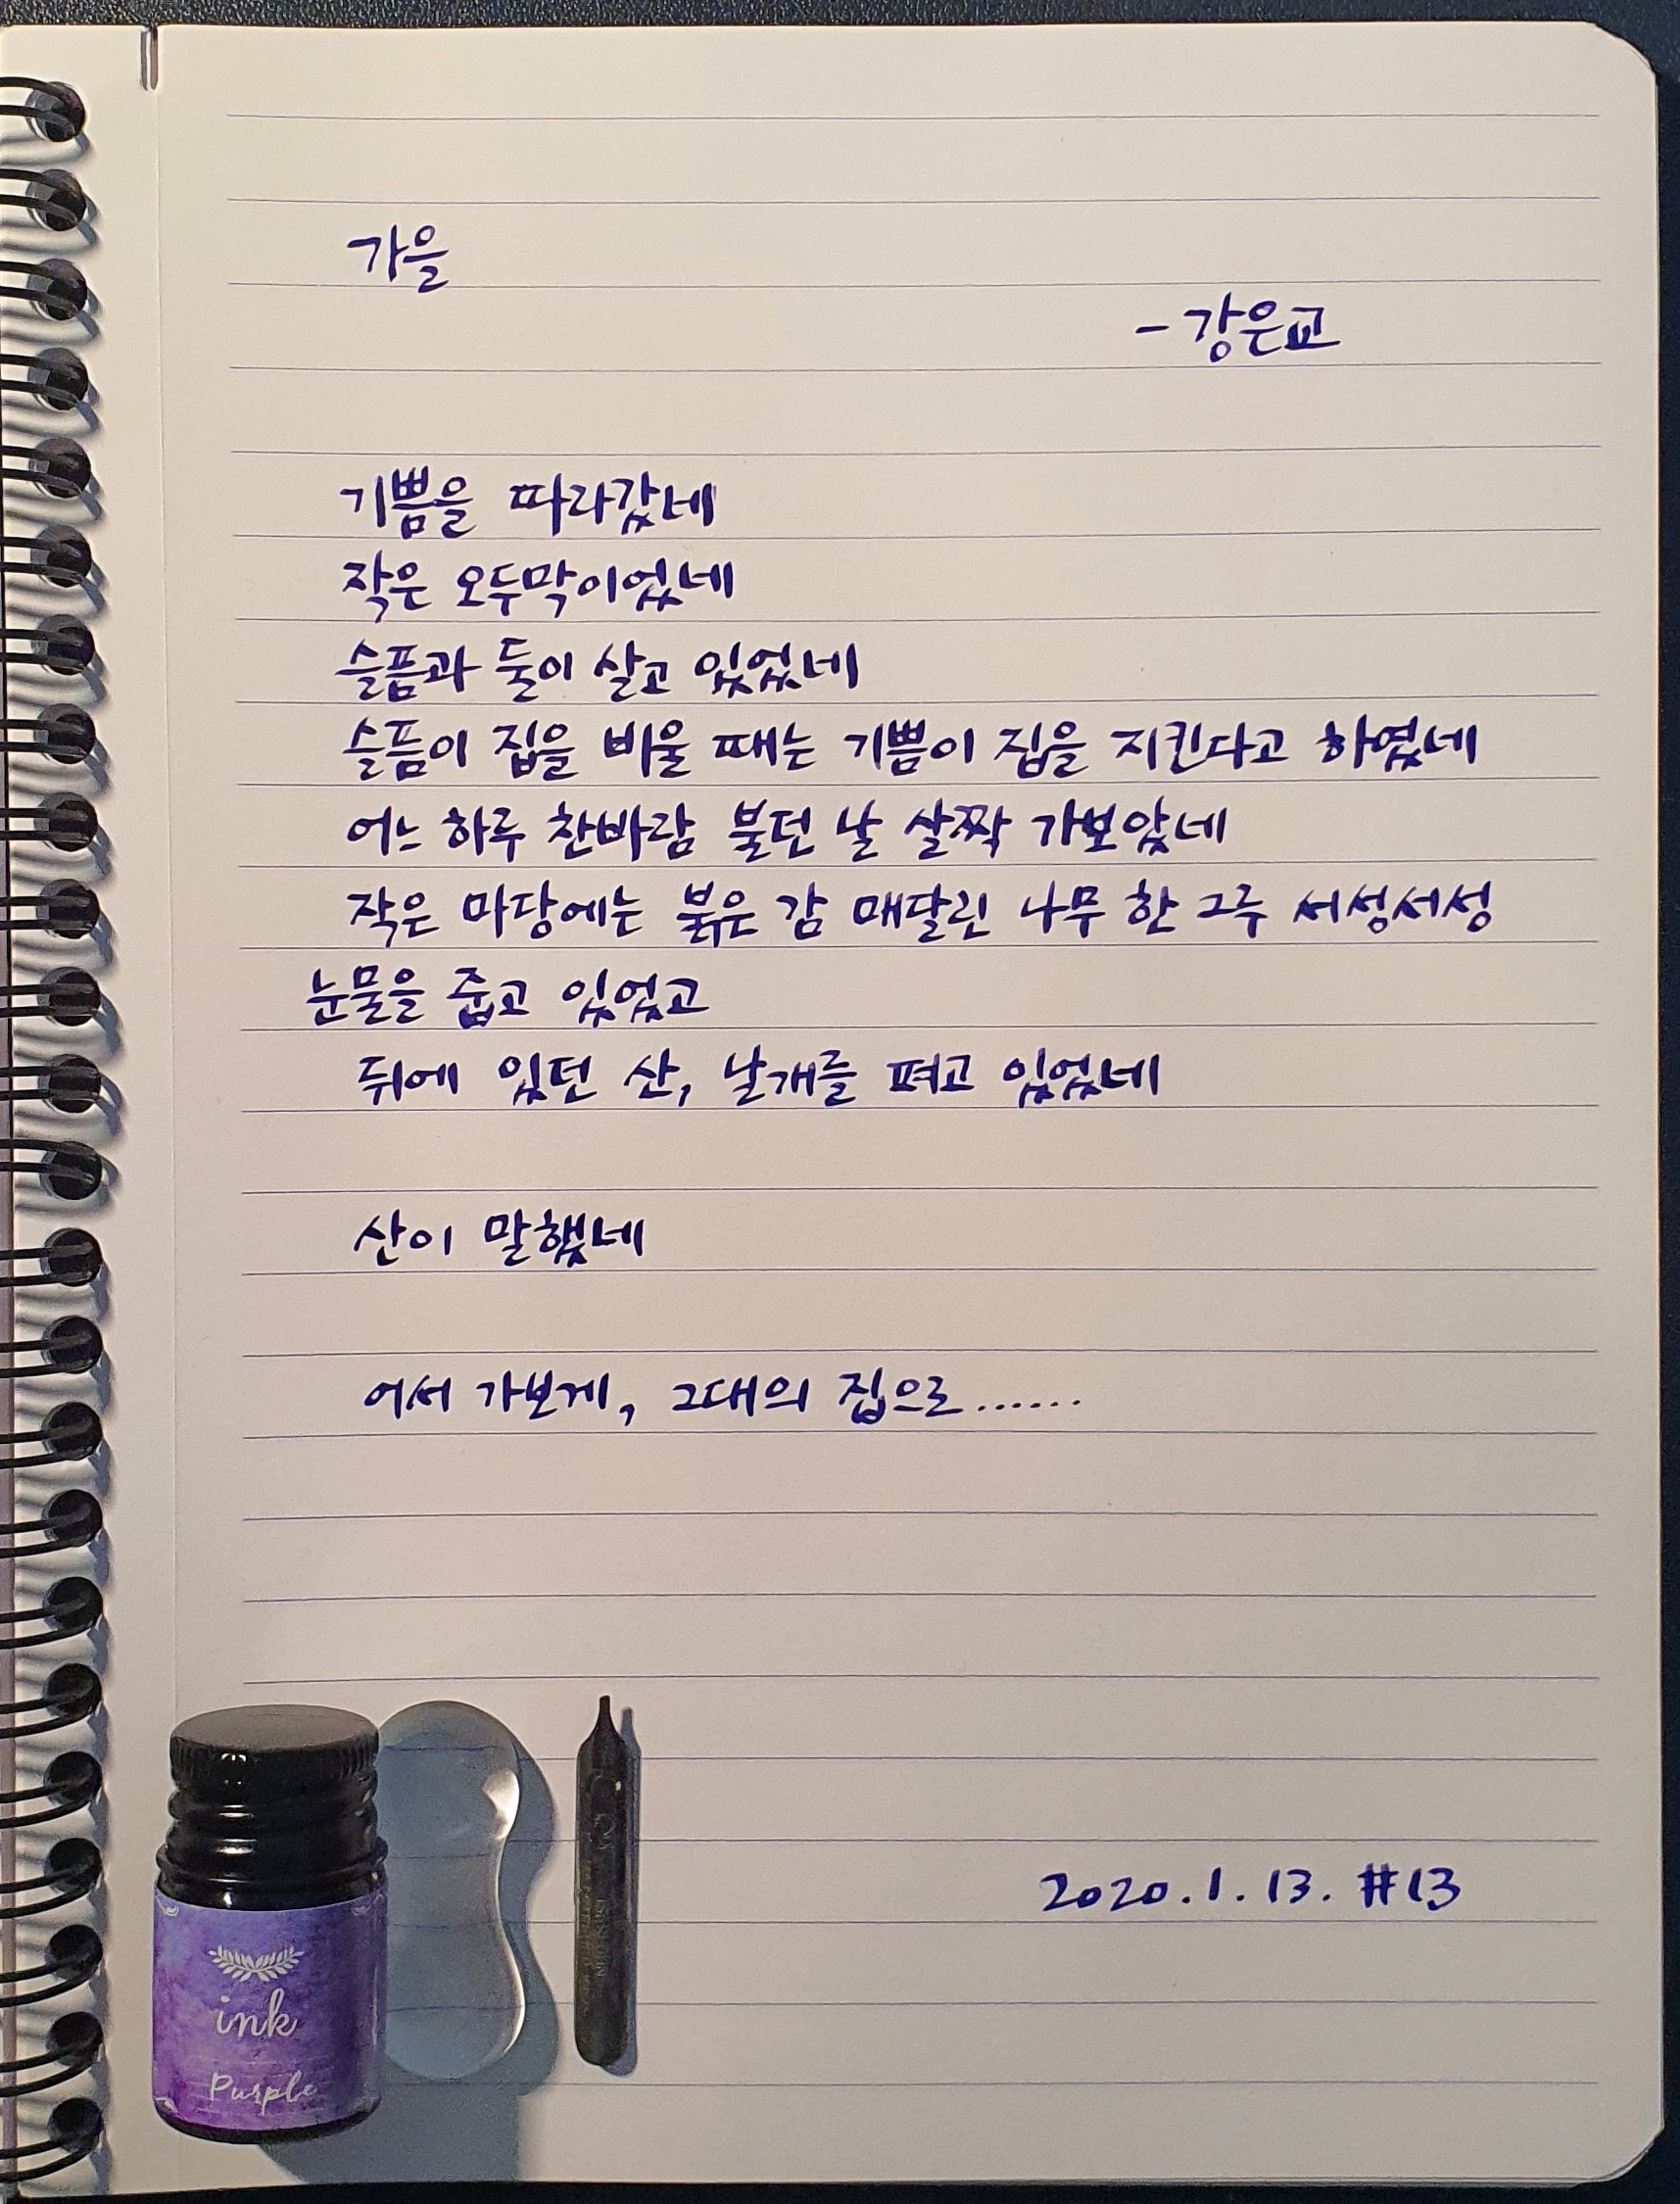 가을
- 강은교
기쁨을 따라갔네
작은 오두막이었네
슬픔과 둘이 살고 있었네
슬픔이 집을 비울 때는 기쁨이 집을 지킨다고 하였네
어느 하루 찬바람 불던 날 살짝 가보았네
작은 마당에는 붉은 감 매달린 나무 한 그루 서성서성
눈물을 줍고 있었고
뒤에 있던 산, 날개를 펴고 있었네
산이 말했네
어서 가보게, 그대의 집으로......
2020.1.13. #13
ink
Purple